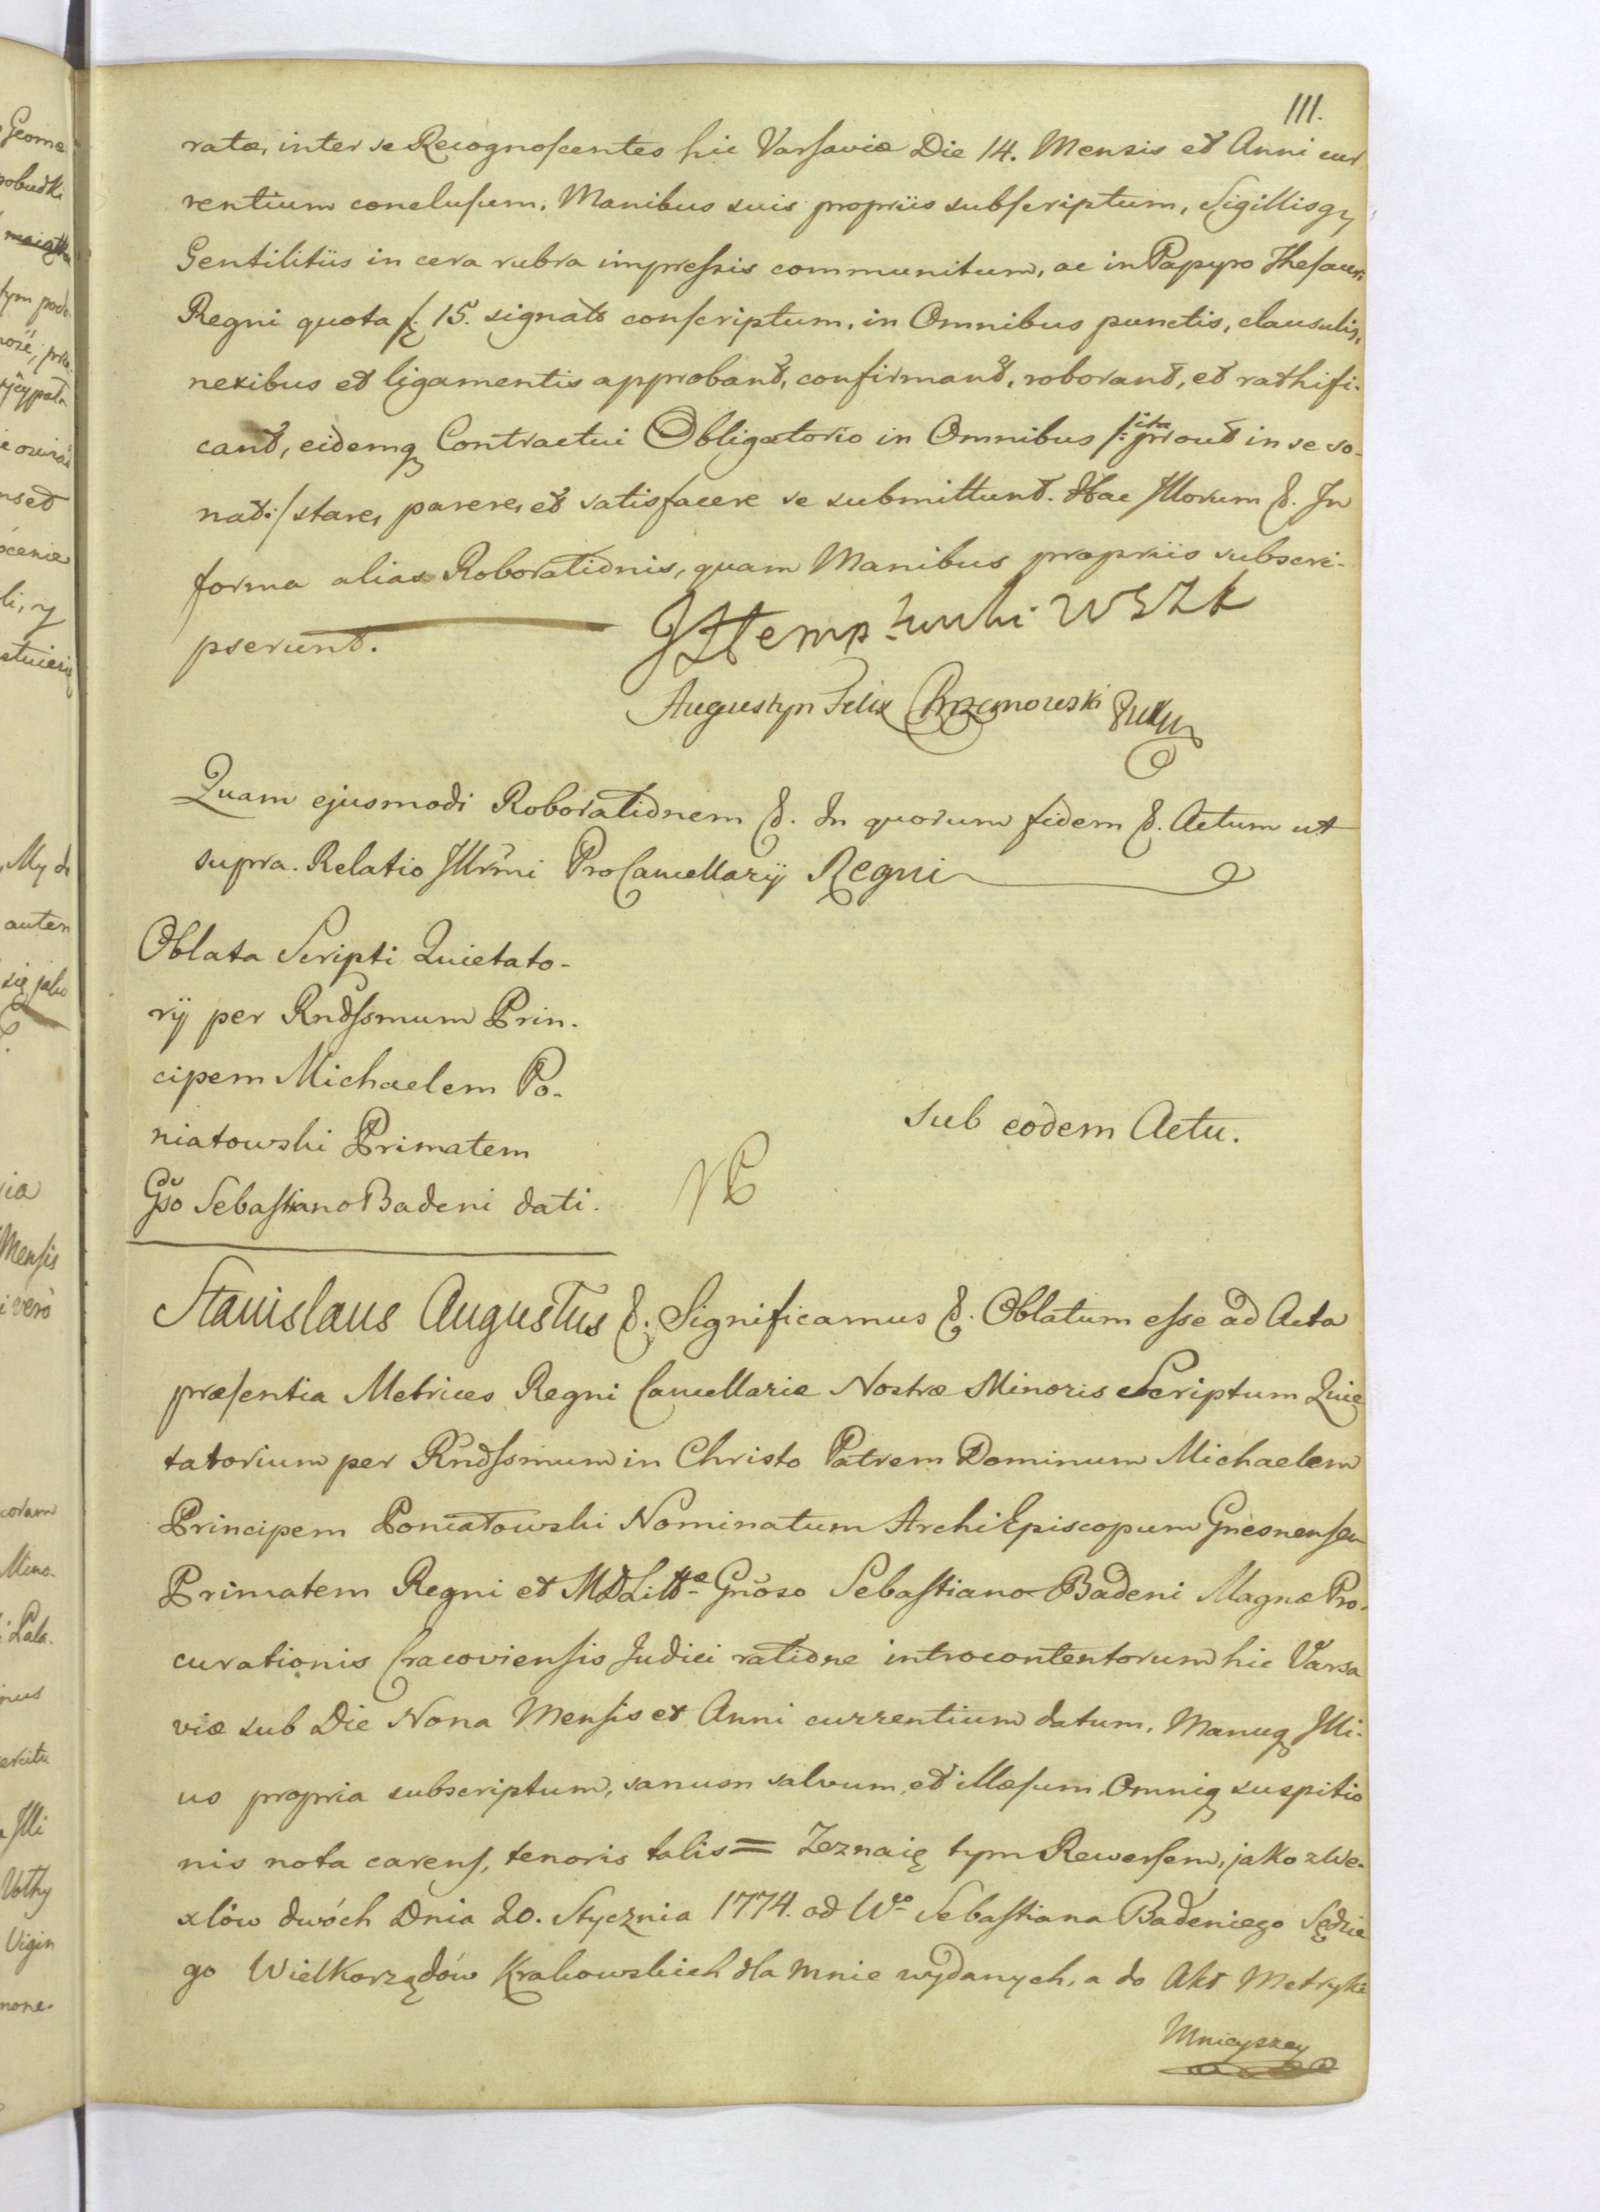 111.
ratæ, inter se Recognoſcentes hic Varſaviæ Die 14. Mensis et Anni cur
rentium concluſum, Manibus suis propriis subſcriptum, Sigillisqȝ
Gentilitiis in cera rubra impreſsis communitum, ac in Papyro Theſauri
Regni quota f: 15. signato conſcriptum, in Omnibus punctis, clausulis,
nexibus et ligamentis approbant, confirmant, roborant, et rathifi-
cant, eidemqȝ Contractui Obligatorio in Omnibus /: ita prout in se so-
nat :/ stare, parere, et satisfacere se submittunt. Hac Illorum &. In
forma alias Roborationis, quam Manibus propriis subscri-
pserunt.
Augustyn Felix
Quam ejusmodi Roborationem &. In quorum fidem &. Actum ut
supra. Relatio Illrmi ProCancellarij Regni
Oblata Scripti Quietato-
rij per Rndſsmum Prin-
cipem Michaelem Po-
niatowski Primatem
Gso Sebaſtiano Badeni dati.
sub eodem Actu.
Stanislaus Augustus &. Significamus &. Oblatum eſse ad Acta
præſentia Metrices Regni Cancellariæ Nostræ Minoris Scriptum Quie
tatorium per Rndſsmum in Christo Patrem Dominum Michaelem
Principem Poniatowski Nominatum ArchiEpiscopum Gnesnenſem
Primatem Regni et MDLittæ Gnoso Sebaſtiano Badeni Magnæ Pro-
curationis Cracovienſis Judici ratione introcontentorum hic Varsa
viæ sub Die Nona Menſis et Anni currentium datum, Manuqȝ Illi-
us propria subscriptum, sanum salvum, et illæſum Omniqȝ suspitio
nis nota carenſ, tenoris talis = Zeznaię tym Rewerſem, jako z We-
xlów dwóch Dnia 20. Stycznia 1774. od Wo Sebaſtiana Badeniego Sędzie
go Wielkorządów Krakowskich dla mnie wydanych, a do Akt Metryki
Mnieyszey